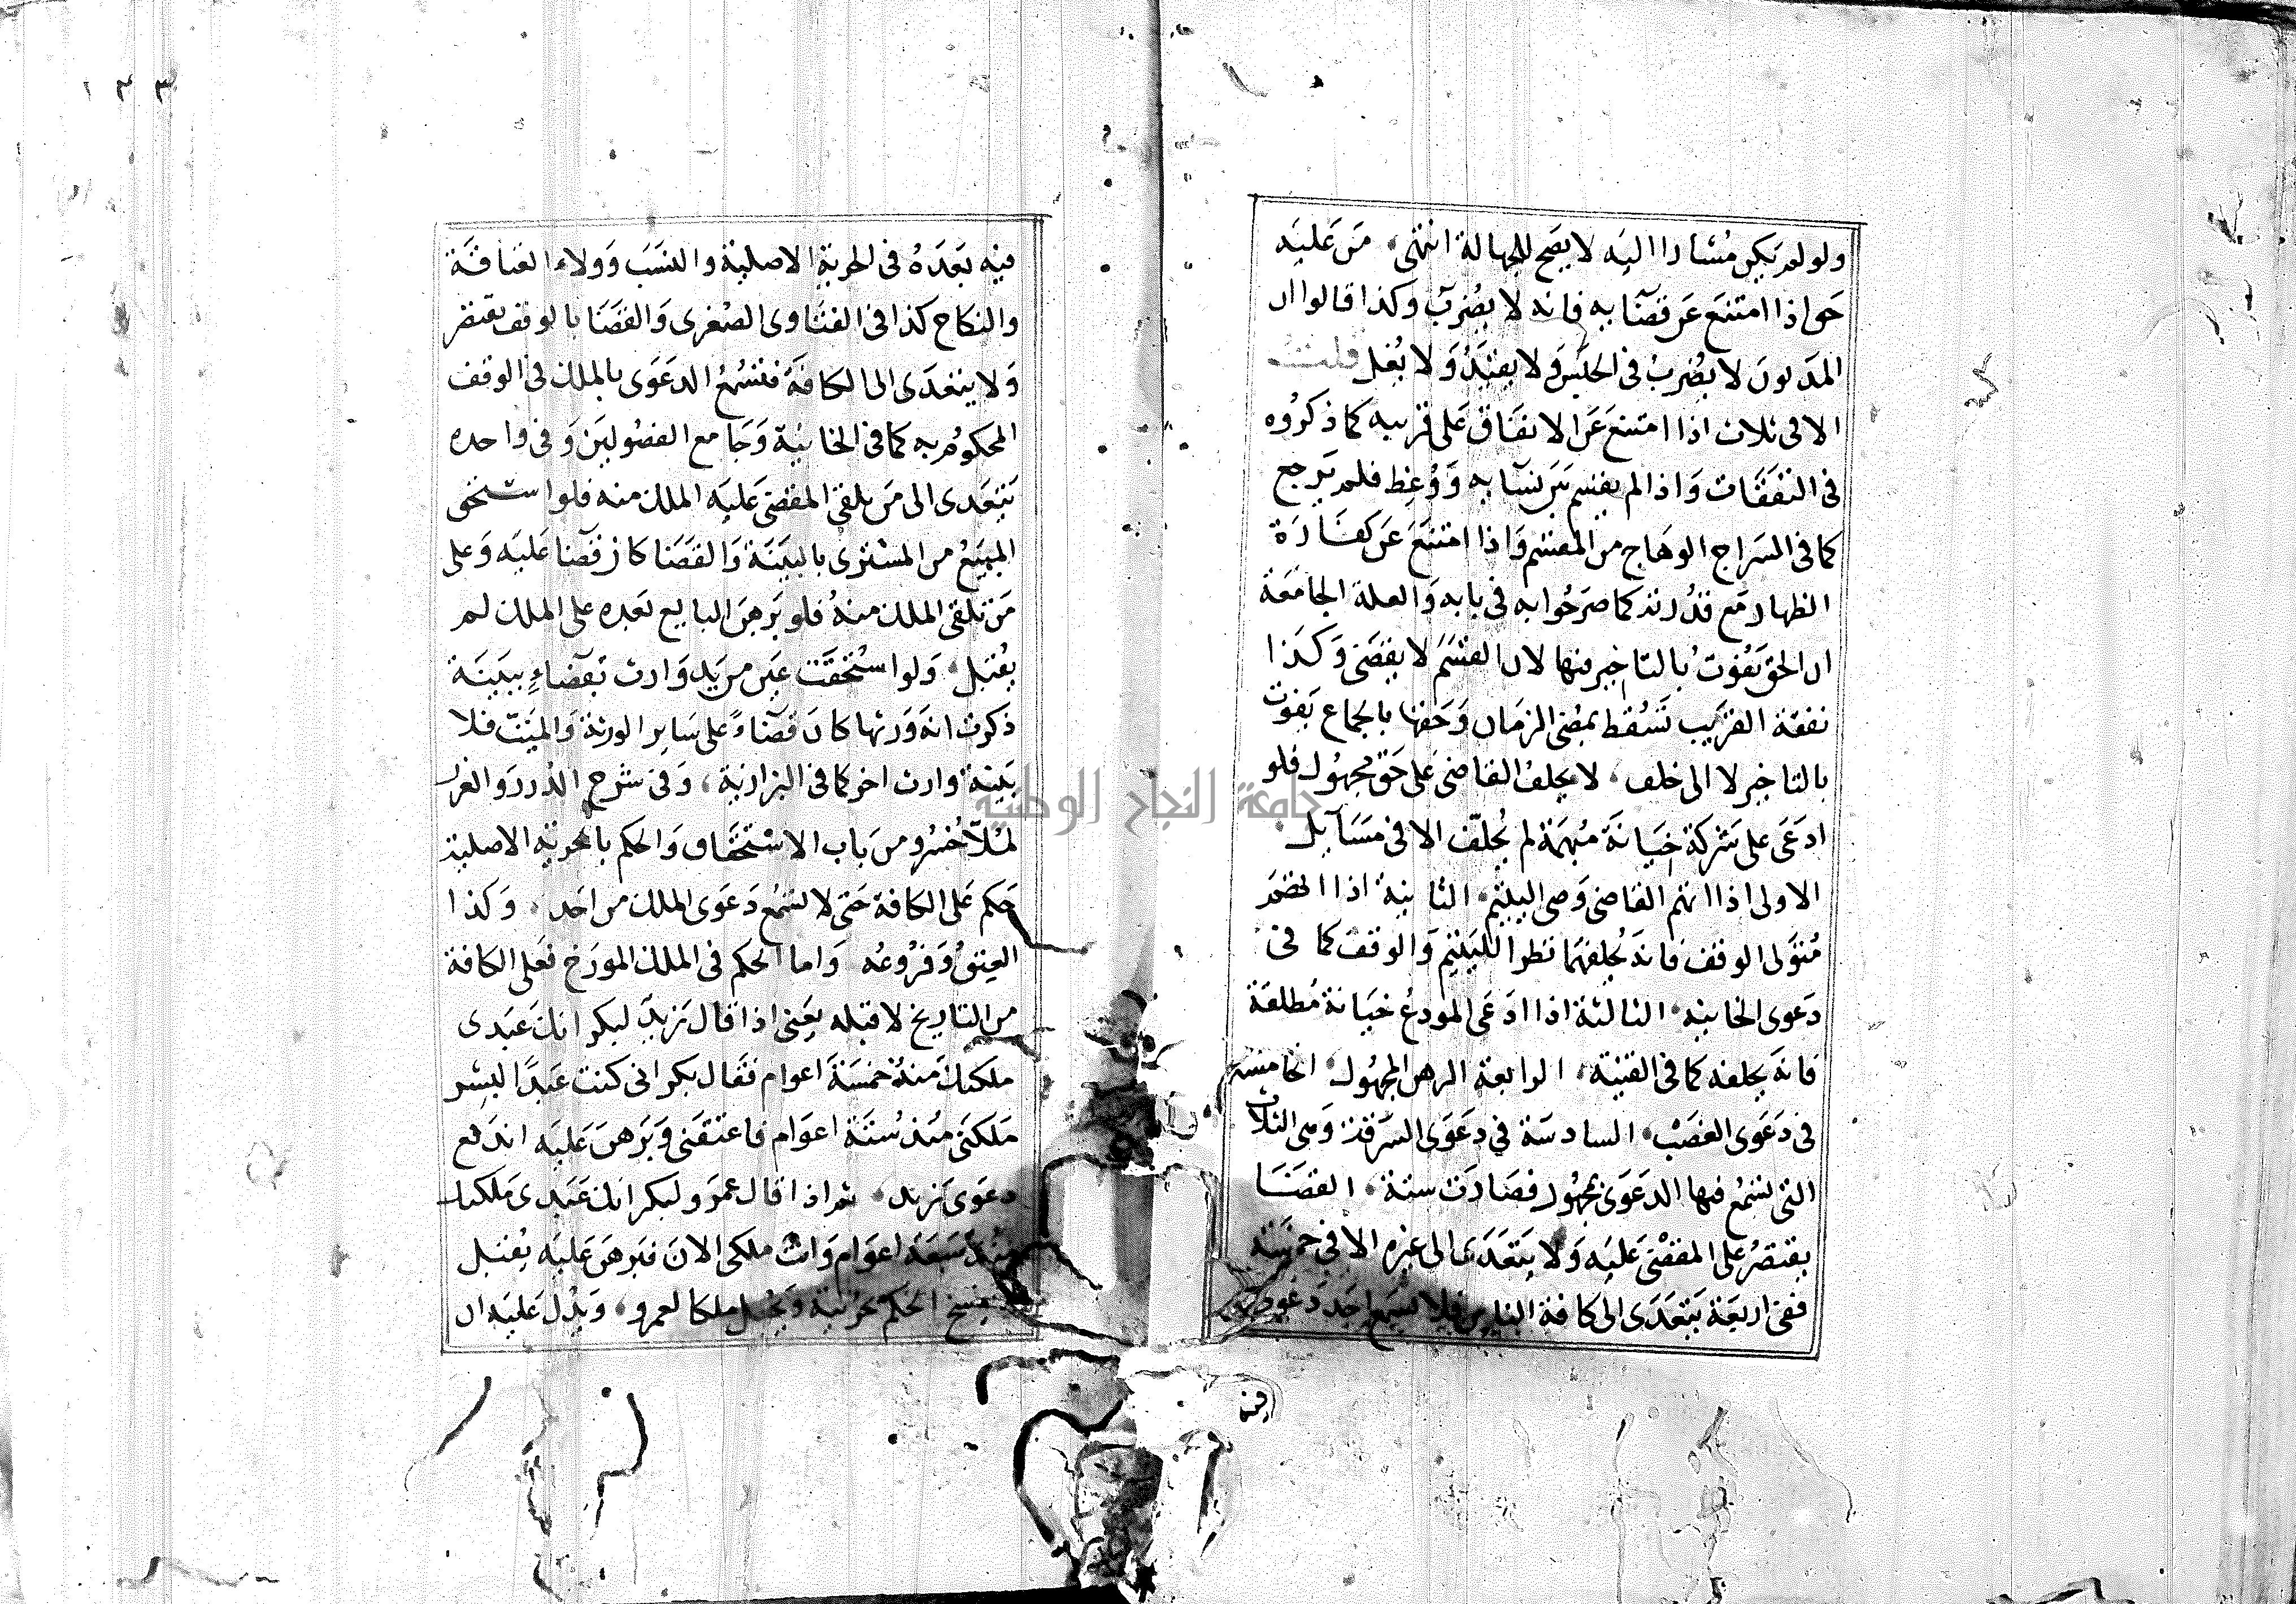 ولو لم يكن مشارا اليه لا يصح للجهالة انتهى من عليه
حق اذا امتنع عن قضآئه فانه لا يضرب وكذا قالوا ان
المديون لا يضرب في الحبس ولا يقيد ولا يغل قلت
الا في ثلاث اذا امتنع عن الانفاق على قريبه كما ذكروه
في النفقات واذا لم يقسم بين نسآئه ووعظ فلم يرجع
كما في السراج الوهاج من القسم واذا امتنع عن كفارة
الظهار مع قدرته كما صرحوا به في بابه والعلة الجامعة
ان الحق يفوت بالتاخير فيها لان القسم لا يقضى وكذا
نفقة القريب تسقط بمضى الزمان وحقها بالجماع يفوت
بالتاخير لا الى خلف لا يحلف القاضى على حق مجهول فلو
ادعى على شركة خيانة مبهمة لم يحلف الا في مسآيل
الاولى اذا اتهم القاضى وصى اليتيم الثانية اذا اتهم
متولى الوقف فانه يحلفهما نظرا لليتيم والوقف كما في
دعوى الخانيه الثالثة اذا ادعى المودع خيانة مطلقة
فانه يحلفه كما في القنية الرابعة الرهن المجهول الخامسة
في دعوى الغصب السادسة في دعوى السرقة وهى الثلاث
التى تسمع فيها الدعوى بمجهول فصارت ستة القضا
يقتصر على المقضى عليه ولا يتعدى الى غيره الا في خمسة
ففى اربعة يتعدى الى كافة الناس فلا تسمع احد دعوى
فيه
١٢٣
فيه بعده في الحرية الاصلية والنسب وولاء العتاقة
والنكاح كذا في الفتاوى الصغرى والقضا بالوقف يقتصر
ولا يتعدى الى الكافة فتسمع الدعوى بالملك في الوقف
المحكوم به كما في الخانية وجامع الفصولين وفى واحده
يتعدى الى من تلقى المقضى عليه الملك منه فلو استحق
المبيع من المشترى بالبينة والقضا كان قضآا عليه وعلى
من تلقى الملك منه فلو برهن البايع بعده على الملك لم
يقبل ولو استحقت عين من يد وارث بقضاء ببينة
ذكرت انه ورثها كان قضآء على ساير الورثة والميت فلا
بينة وارث اخر كما في البزازية وفى شرح الدرر والغرر
لملا خسرو من باب الاستحقاق والحكم بالحريه الاصلية
حكم على الكافة حتى لا تسمع دعوى الملك من احد وكذا
العتق وفروعه واما الحكم في الملك المورخ فعلى الكافة
من التاريخ لا قبله يعنى اذا قال زيد لبكر انك عبدى
ملكتك منذ خمسة اعوام فقال بكر انى كنت عبدا لبشر
ملكنى منذ ستة اعوام فاعتقنى وبرهن عليه اندفع
دعوى زيد ثم اذا قال عمرو لبكر انك عبدى ملكتك
منذ سبعة اعوام وانت ملكى الان فبرهن عليه يقبل
يفسخ الحكم بحريته ويجعل ملكا لعمرو ويدل عليه ان
جامعة النجاح الوطنية